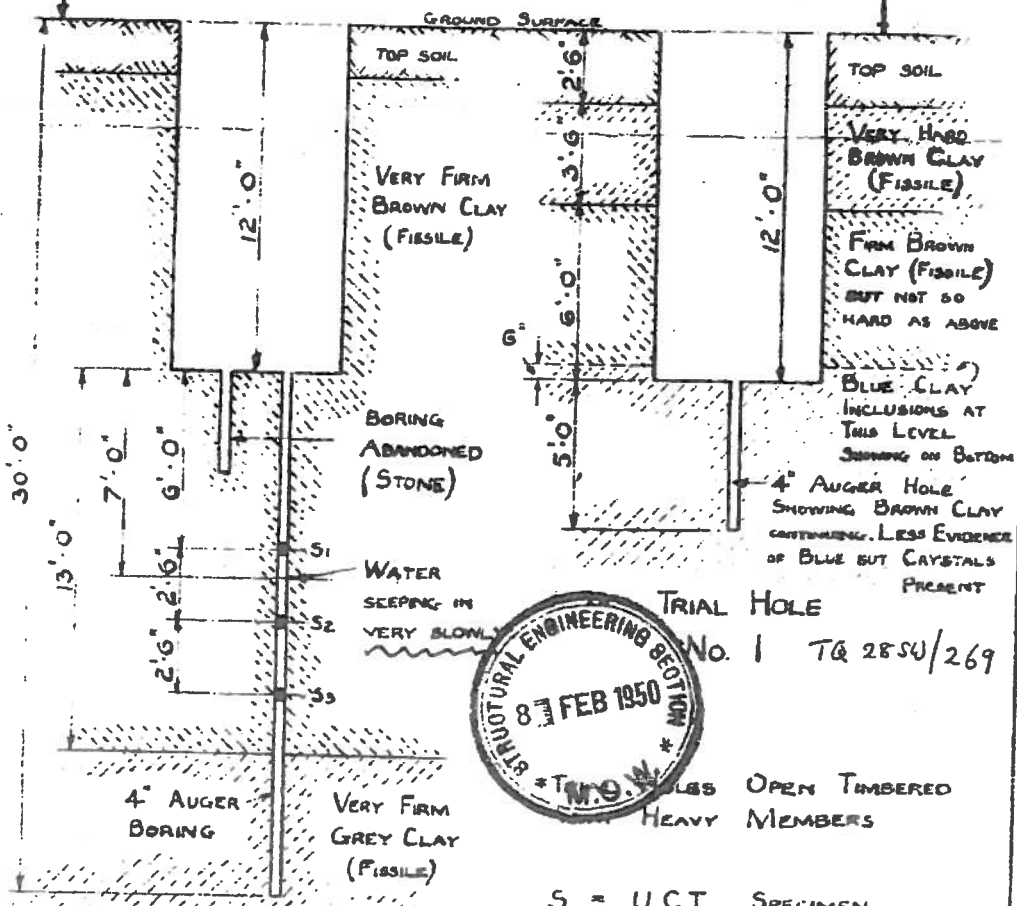 GROUND SURFACE
TOP SOIL
12'. 0"
VERY FIRM
BROWN CLAY
(FISSILE)
30'. 0"
13'. 0"
7'. 0"
6'. 0"
2'. 6"
2'. 6"
BORING
ABANDONED
(STONE)
S1
WATER
SEEPING IN
VERY SLOWLY
S2
S3
4" AUGER
BORING
VERY FIRM
GREY CLAY
(FISSILE)
2'. 6"
3'. 6"
6'. 0"
6"
5'. 0"
12'. 0"
TOP SOIL
VERY HARD
BROWN CLAY
(FISSILE)
FIRM BROWN
CLAY (FISSILE)
BUT NOT SO
HARD AS ABOVE
BLUE CLAY
INCLUSIONS AT
THIS LEVEL
SHOWING ON BOTTOM
4" AUGER HOLE
SHOWING BROWN CLAY
CONTINUING. LESS EVIDENCE
OF BLUE BUT CRYSTALS
PRESENT
TRIAL HOLE
No. 1 TQ 28SW/269
STRUCTURAL ENGINEERING SECTION
8 FEB 1950
* M.O.W. *
OPEN TIMBERED
HEAVY MEMBERS
S = U.C.T. SPECIMEN